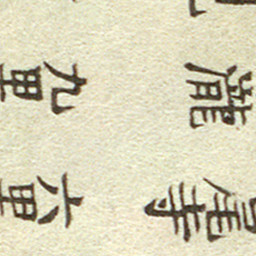 尾寺 六里
瀧 九里